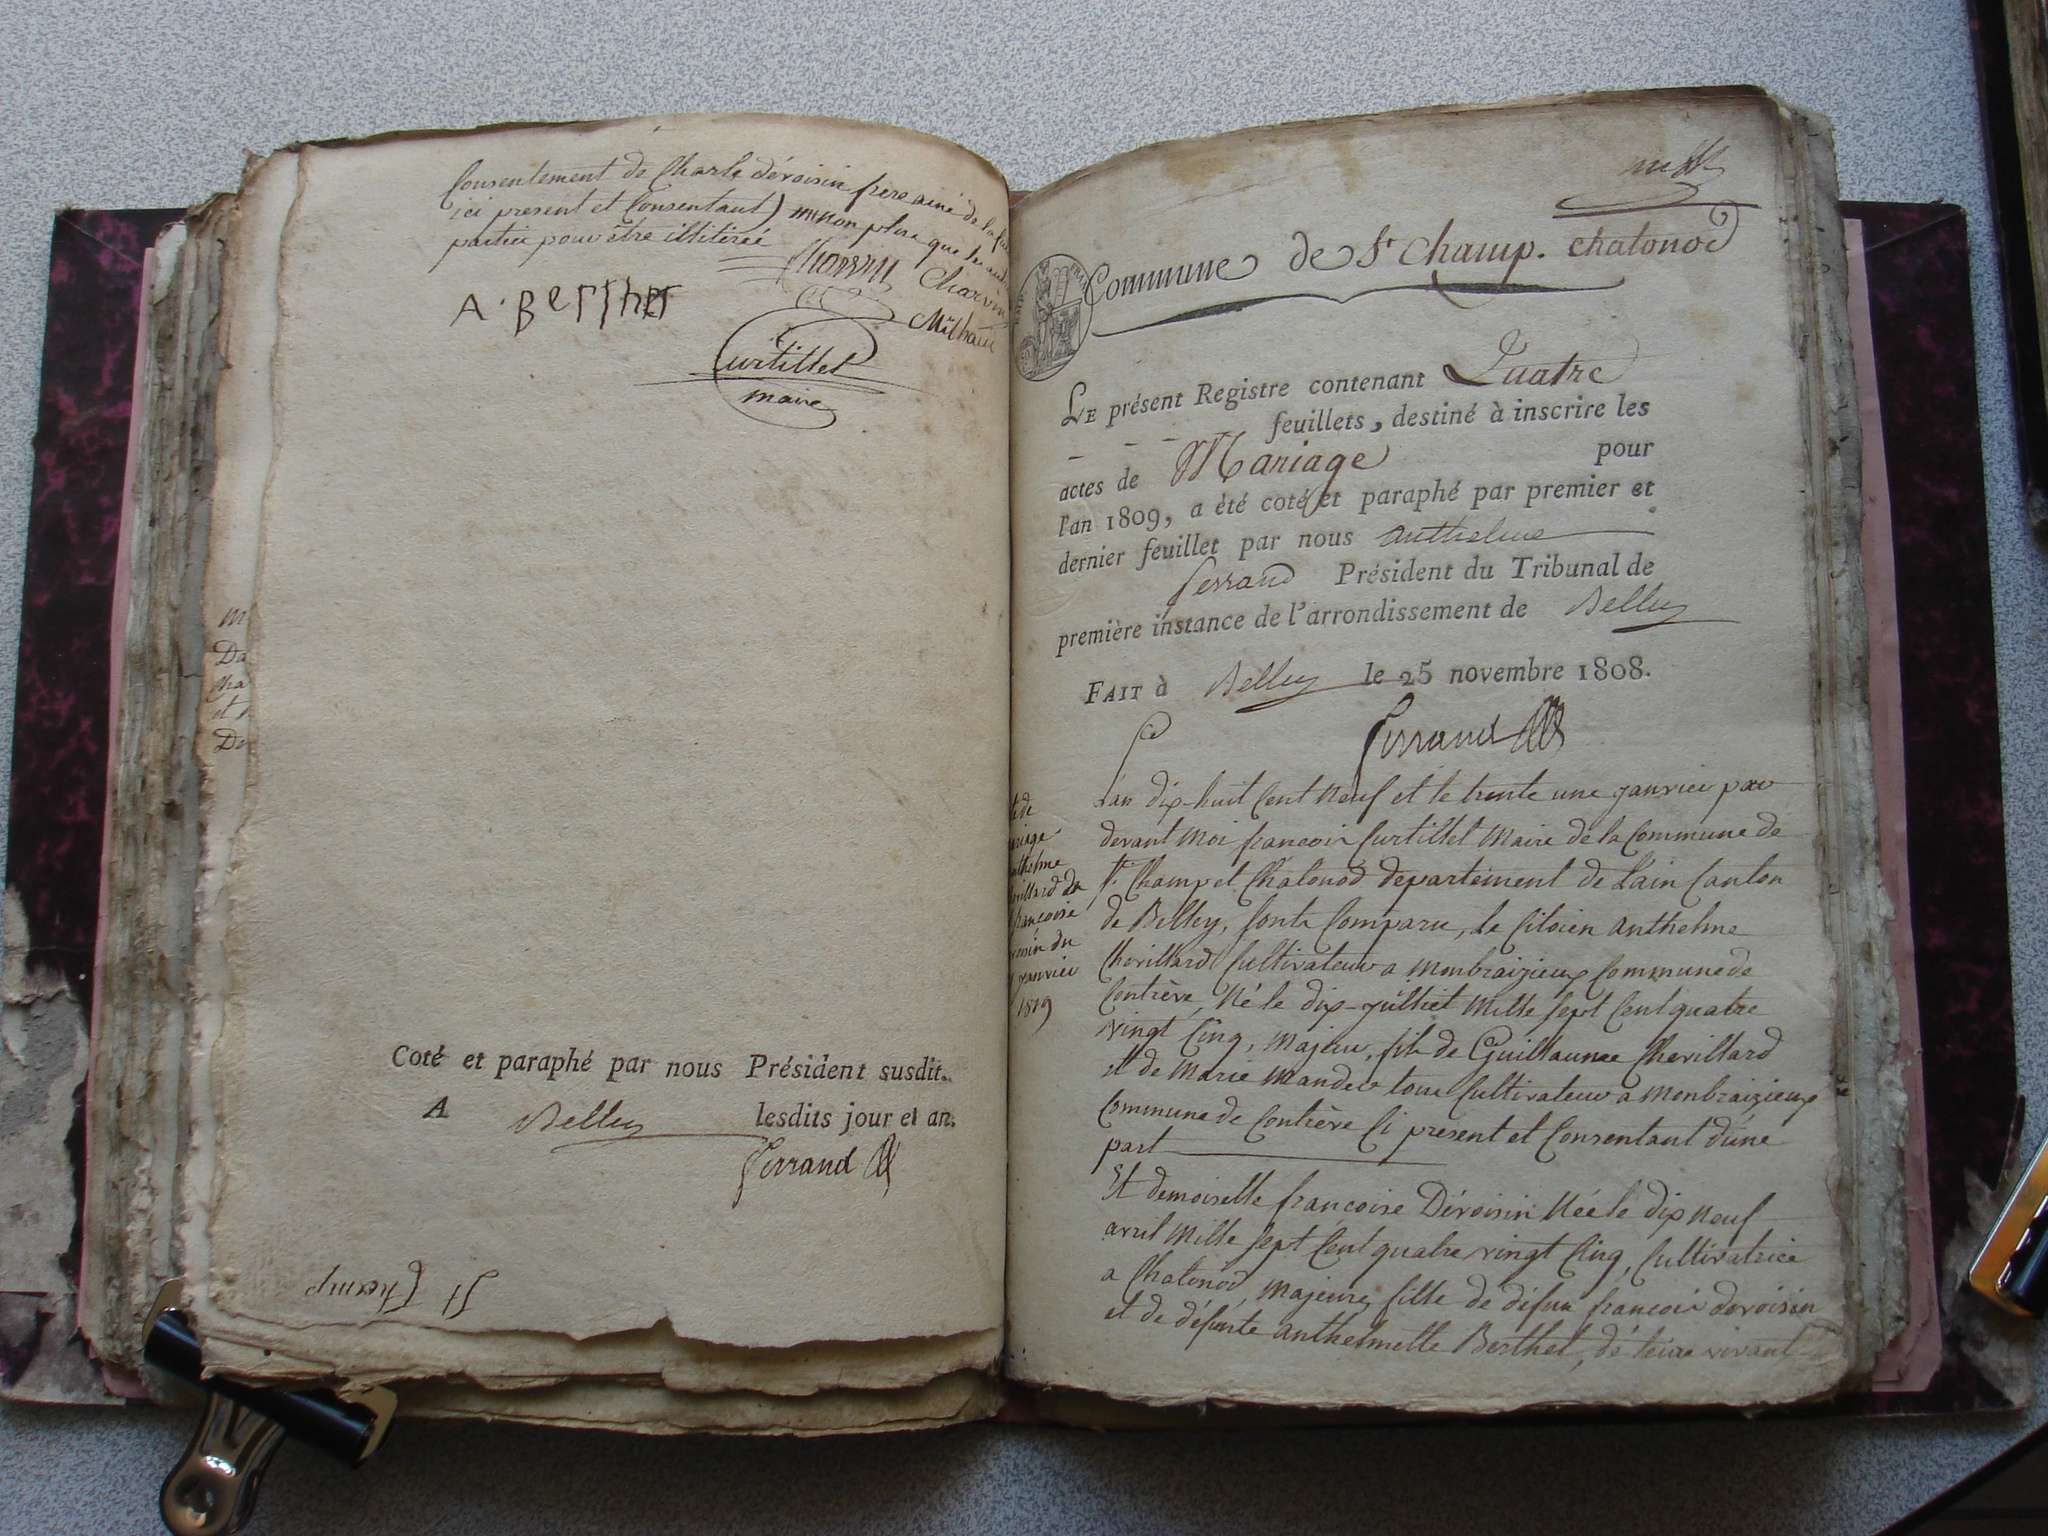 Consentement de Charle dévoisin frere ainé de la
ici present et Consentant) non plus que les
parties pour être illitéréé
Charvin
A. Berthet
Milhaut
Curtillet
maire
Coté et paraphé par nous Président susdit.
A Belley lesdits jour et an.
Ferrand
St Champ
Commune de St Champ. Chatonod
LE présent Registre contenant Quatre
feuillets, destiné à inscrire les
actes de Mariage pour
l'an 1809, a été coté et paraphé par premier et
dernier feuillet par nous Anthelme
Ferrand Président du Tribunal de
première instance de l'arrondissement de Belley
FAIT à Belley le 25 novembre 1808.
Ferrand
Lan dix-huit Cent Neuf et le trente une janvier par
devant Moi francois Curtillet Maire de la Commune de
St. Champ et Chatonod departement de L'ain Canton
de Belley, sont Comparu, le Citoien anthelme
Chevillard Cultivateur a Monbraizieux Commune de
Contrève, Né le dix-juilliet Mille sept Cent quatre
vingt Cinq, Majeur, fils de Guillaume Chevillard
et de Marie Mandex tous Cultivateur a Monbraizieux
Commune de Contrève Ci present et Consentant d'úne
part
Et demoiselle francoise Dévoisin Néé le dix Neuf
avril Mille sept Cent quatre vingt Cinq, Cultivatrice
a Chatonod, Majeure, fille de défun francois devoisin
et de défunte anthelmette Berthet, dé leure vivant
francoise
janvier
1809